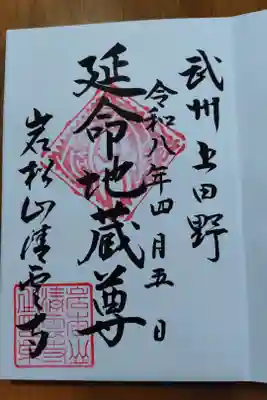 武州上田野
令和八年四月五日
延命地蔵尊
岩松山清雲寺